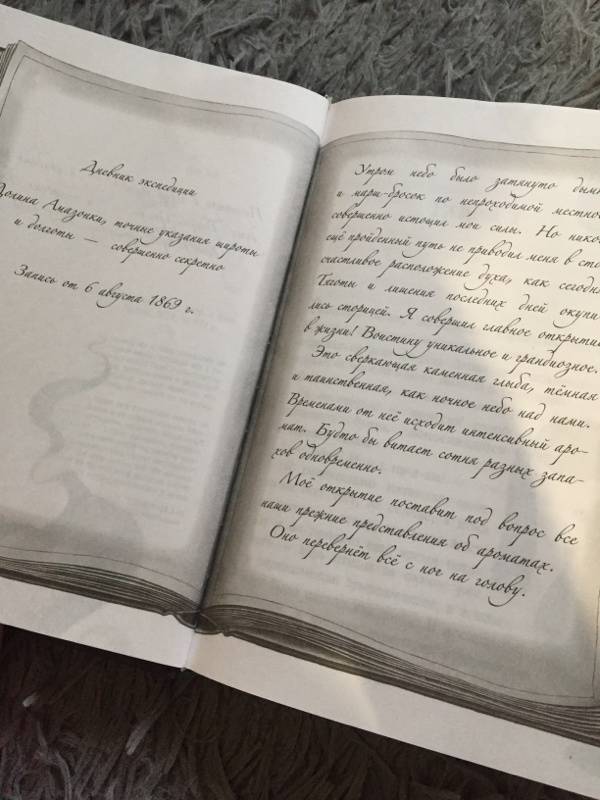 Дневник экспедиции
Долина Амазонки, точные указания широты
и долготы — совершенно секретно
Запись от 6 августа 1869 г.
Утром небо было затянуто
и марш-бросок по непроходимой
совершенно истощил мои силы. Но
ещё пройденный путь не приводил меня в
счастливое расположение духа, как
Тяготы и лишения последних дней окупи-
лись сторицей. Я совершил главное открытие
в жизни! Воистину уникальное и грандиозное.
Это сверкающая каменная глыба, тёмная
и таинственная, как ночное небо над нами.
Временами от неё исходит интенсивный аро-
мат. Будто бы витает сотня разных запа-
хов одновременно.
Моё открытие поставит под вопрос все
наши прежние представления об ароматах.
Оно перевернёт всё с ног на голову.